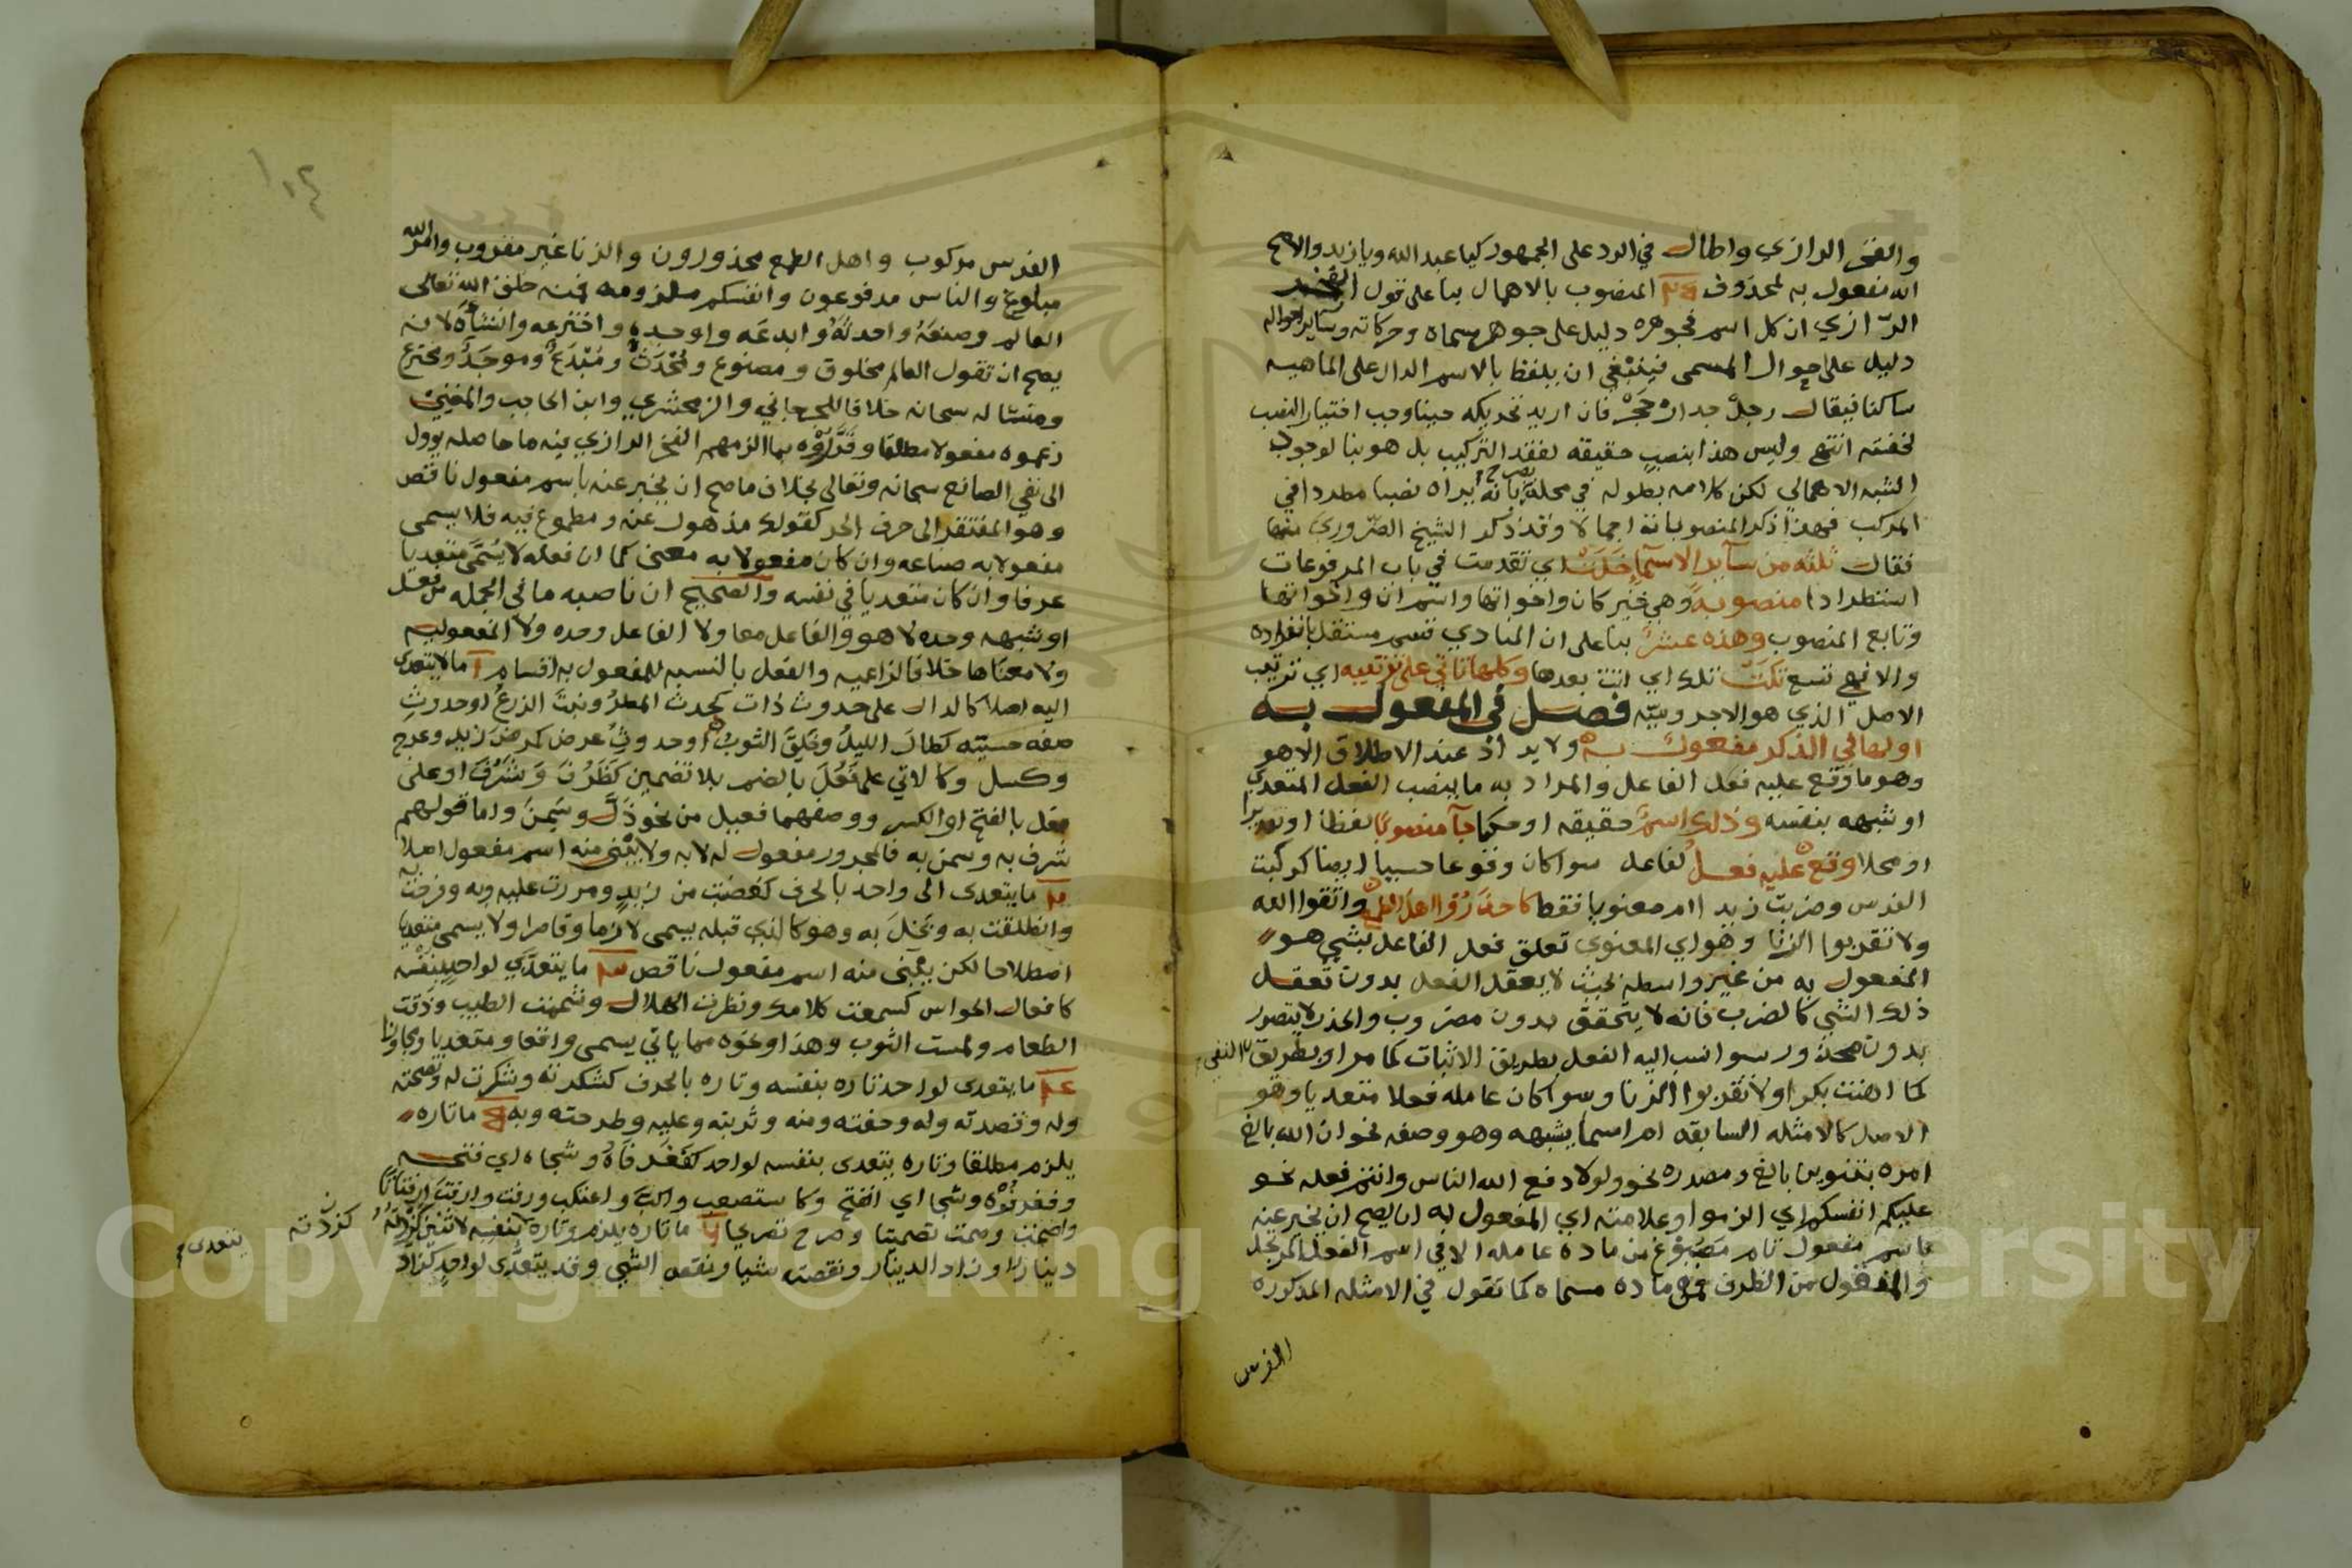 والفخر الرازي واطال في الرد على الجمهور كيا عبد الله ويا زيد والاصح
انه مفعول به لمحذوف المنصوب بالاهمال بنا على قول الفخر
الرازي ان كل اسم فجوهره دليل على جوهر مسماه وحركاته وساير احواله
دليل على احوال المسمى فينبغي ان يلفظ بالاسم الدال على الماهيه
ساكنا فيقال رجل جدار حجر فان اريد تحريكه حينا وجب اختيار النصب
لخفته انتهى وليس هذا بنصب حقيقه لفقد التركيب بل هو بنا لوجود
الشبه الاهمالي لكن كلامه بطوله في محله يصرح بانه يراه نصبا مطردا في
المركب فهذا ذكر المنصوبات اجمالا وقد ذكر الشيخ الضروري منها
فقال ثلثه من ساير الاسما خلت اي تقدمت في باب المرفوعات
استطرادا منصوبة وهي خبر كان واخواتها واسم ان واخواتها
وتابع المنصوب وهذه عشر بنا على ان المنادي قسم مستقل بانفراده
والا فهي تسع تلت تلك اي اتت بعدها وكلها تاتي على ترتيبه اي ترتيب
الاصل الذي هو الاجروميه فصل في المفعول به
اولها في الذكر مفعول به ولا يراد عند الاطلاق الا هو
وهو ما وقع عليه فعل الفاعل والمراد به ما ينصب الفعل المتعدي
او شبهه بنفسه وذلك اسم حقيقه او حكما جا منصوبا لفظا او تقديرا
او محلا وقع عليه فعل لفاعل سوا كان وقوعا حسيا ايضا كركبت
الفرس وضربت زيدا ام معنويا فقط كاحذروا اهل الطمع واتقوا الله
ولا تقربوا الزنا وهو اي المعنوي تعلق فعل الفاعل بشي هو
المفعول به من غير واسطه بحيث لا يعقل الفعل بدون تعقل
ذلك الشي كالضرب فانه لا يتحقق بدون مضروب والحذر لا يتصور
بدون محذور سوا نسب اليه الفعل بطريق الاثبات كما مر او بطريق النفي
كما اهنت بكرا ولا تقربوا الزنا وسوا كان عامله فعلا متعديا وهو
الاصل كالامثله السابقه ام اسما يشبهه وهو وصفه نحو ان الله بالغ
امره بتنوين بالغ ومصدره نحو ولولا دفع الله الناس واسم فعله نحو
عليكم انفسكم اي الزموا وعلامته اي المفعول به ان يصح ان يخبر عنه
باسم مفعول تام مصوغ من مادة عامله الا في اسم الفعل المرتجل
والمنقول من الظرف فمن مادة مسماه كما تقول في الامثله المذكوره
الفرس
١٠٤
الفرس مركوب واهل الطمع محذورون والزنا غير مقروب وامر الله
مبلوغ والناس مدفوعون وانفسكم ملزومه فمنه خلق الله تعالى
العالم وصنعه واحدثه وابدعه واوجده واخترعه وانشأه لانه
يصح ان تقول العالم مخلوق ومصنوع ومحدث ومبدع وموجد ومخترع
ومنشا له سبحانه خلافا للجرجاني والزمخشري وابن الحاجب والمغني
زعموه مفعولا مطلقا وقرروه بما الزمهم الفخر الرازي فيه ما حاصله يوول
الى نفي الصانع سبحانه وتعالى بخلاف ما صح ان يخبر عنه باسم مفعول ناقص
وهو المفتقر الى حرف الجر كقولك مذهول عنه ومطموع فيه فلا يسمى
مفعولا به صناعه وان كان مفعولا به معنى كما ان فعله لا يسمى متعديا
عرفا وان كان متعديا في نفسه والصحيح ان ناصبه ما في الجمله من فعل
او شبهه وحده لا هو والفاعل معا ولا الفاعل وحده ولا المفعوليه
ولا معناها خلافا لزاعميه والفعل بالنسبه للمفعول به اقسام ا ما لا يتعدى
اليه اصلا كالدال على حدوث ذات كحدث المطر ونبت الزرع او حدوث
صفه حسيه كطال الليل وخلق الثوب او حدوث عرض كمرض زيد وعرج
وكسل وكالاتي على فعل بالضم بلا تضمين كظرف وشرف او على
فعل بالفتح او الكسر ووصفهما فعيل من نحو ذل وسمن واما قولهم
شرف به وسمن به فالمجرور مفعول له لا به ولا يبنى منه اسم مفعول اصلا
ما يتعدى الى واحد بالحرف كغضبت من زيد ومررت عليه وبه وفرحت به
وانطلقت به وبخل به وهو كالذي قبله يسمى لازما وقاصرا ولا يسمى متعديا
اصطلاحا لكن يبنى منه اسم مفعول ناقص ما يتعدى لواحد بنفسه
كافعال الحواس كسمعت كلامك ونظرت الهلال وشممت الطيب وذقت
الطعام ولمست الثوب وهذا ونحوه مما ياتي يسمى واقعا ومتعديا ومجاوزا
ما يتعدى لواحد تاره بنفسه وتاره بالحرف كشكرته وشكرت له ونصحته
وله وقصدته وله وخفته ومنه وعليه وطرحته وبه ما تاره
يلزم مطلقا وتاره يتعدى بنفسه لواحد كفغر فاه وشجاه اي فتحه
وفغر فوه وشجا اي انفتح وكاستصعب
وصمت تصميتا وصرح تصريحا ما تاره يلزم وتاره بنفسه لاثنين كزدته
كزدته
يتعدى
دينارا وزاد الدينار ونقصته شيا ونقص الشي وقد يتعدى لواحد كزاد